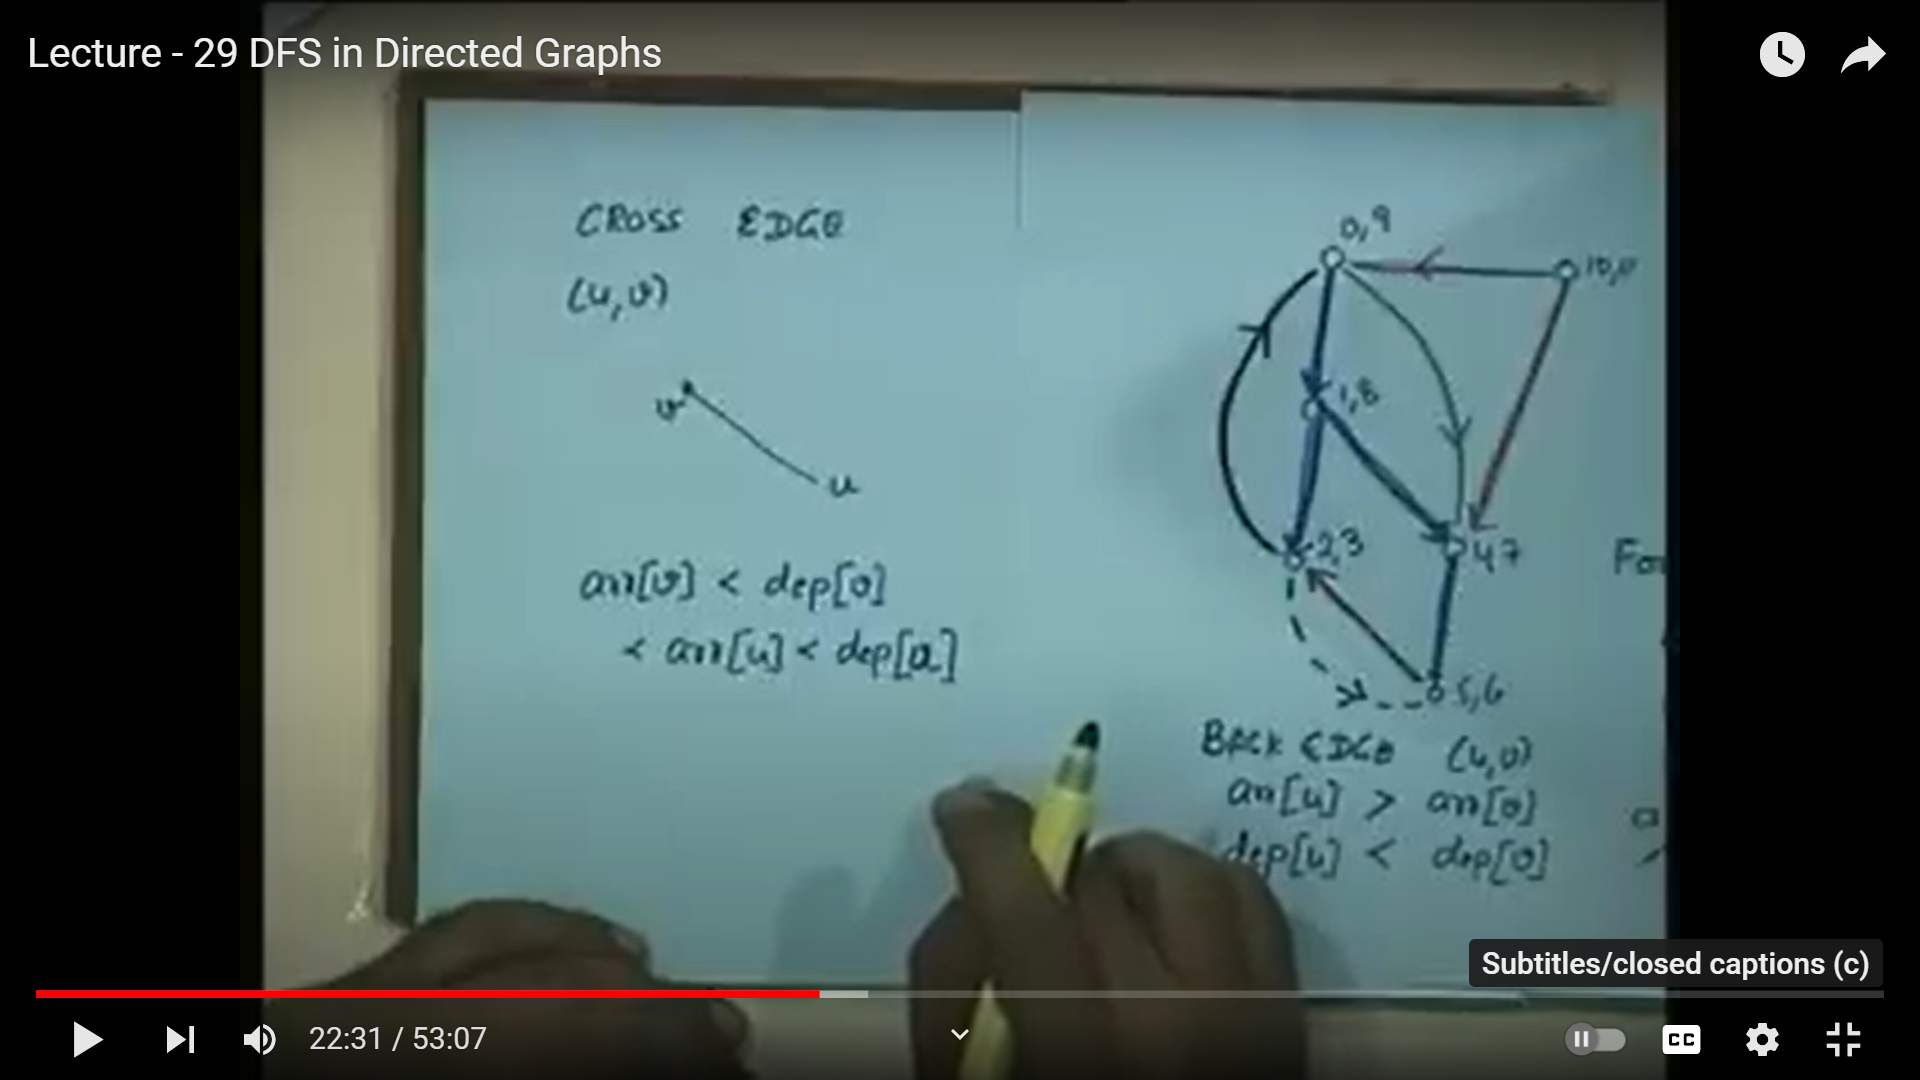 Lecture - 29 DFS in Directed Graphs
CROSS EDGE
(u,v)
v
u
arr[v] < dep[v]
< arr[u] < dep[u]
0,9
10,11
1,8
2,3
4,7
5,6
For
BACK EDGE (u,v)
arr[u] > arr[v]
dep[u] < dep[v]
Subtitles/closed captions (c)
22:31 / 53:07
CC